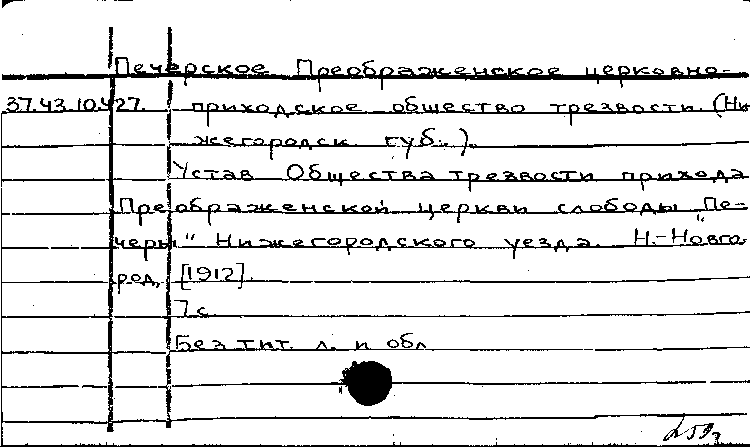 Печерское Преображенское церковно-
37.43.10.427. приходское общество трезвости (Ни
жегородск. губ.).
Устав Общества трезвости прихода
Преображенской церкви слободы „Пе-
черы" Нижегородского уезда. Н.-Новго
род, [1912].
7 с.
Без тит. л. и обл